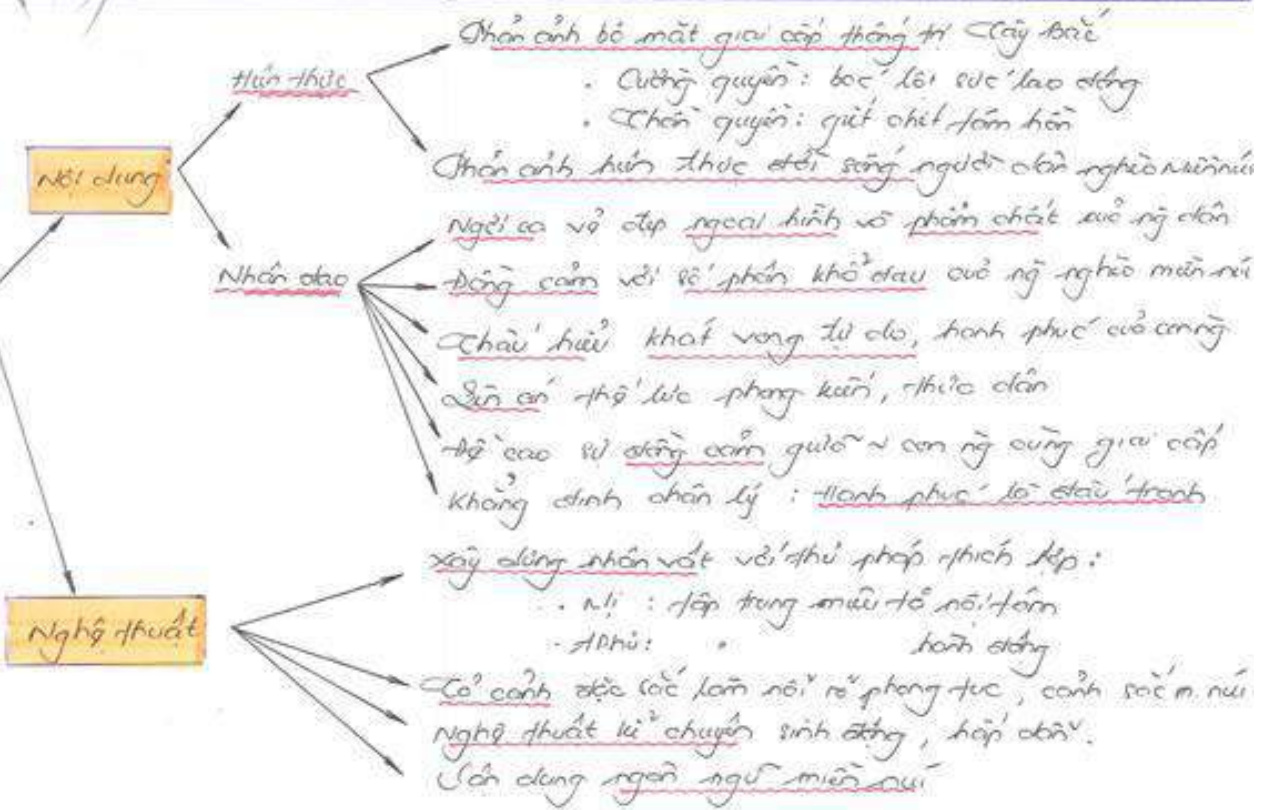 Phản ánh bộ mặt giai cấp thống trị Tây Bắc
Hiện thực
. Cường quyền: bóc lột sức lao động
. Thần quyền: giết chết tâm hồn
Nội dung
Phản ánh hiện thực đời sống người dân nghèo miền núi
Ngợi ca vẻ đẹp ngoại hình và phẩm chất của ng dân
Nhân đạo
Đồng cảm với số phận khổ đau của ng nghèo miền núi
Thấu hiểu khát vọng tự do, hạnh phúc của con ng
Lên án thế lực phong kiến, thực dân
Đề cao sự đồng cảm giữa ~ con ng cùng giai cấp
Khẳng định chân lý : Hạnh phúc là đấu tranh
Xây dựng nhân vật với thủ pháp thích hợp :
. Mị : tập trung miêu tả nội tâm
Nghệ thuật
. APhủ: " hành động
Tả cảnh đặc sắc làm nổi rõ phong tục, cảnh sắc m. núi
Nghệ thuật kể chuyện sinh động, hấp dẫn.
Vận dụng ngôn ngữ miền núi